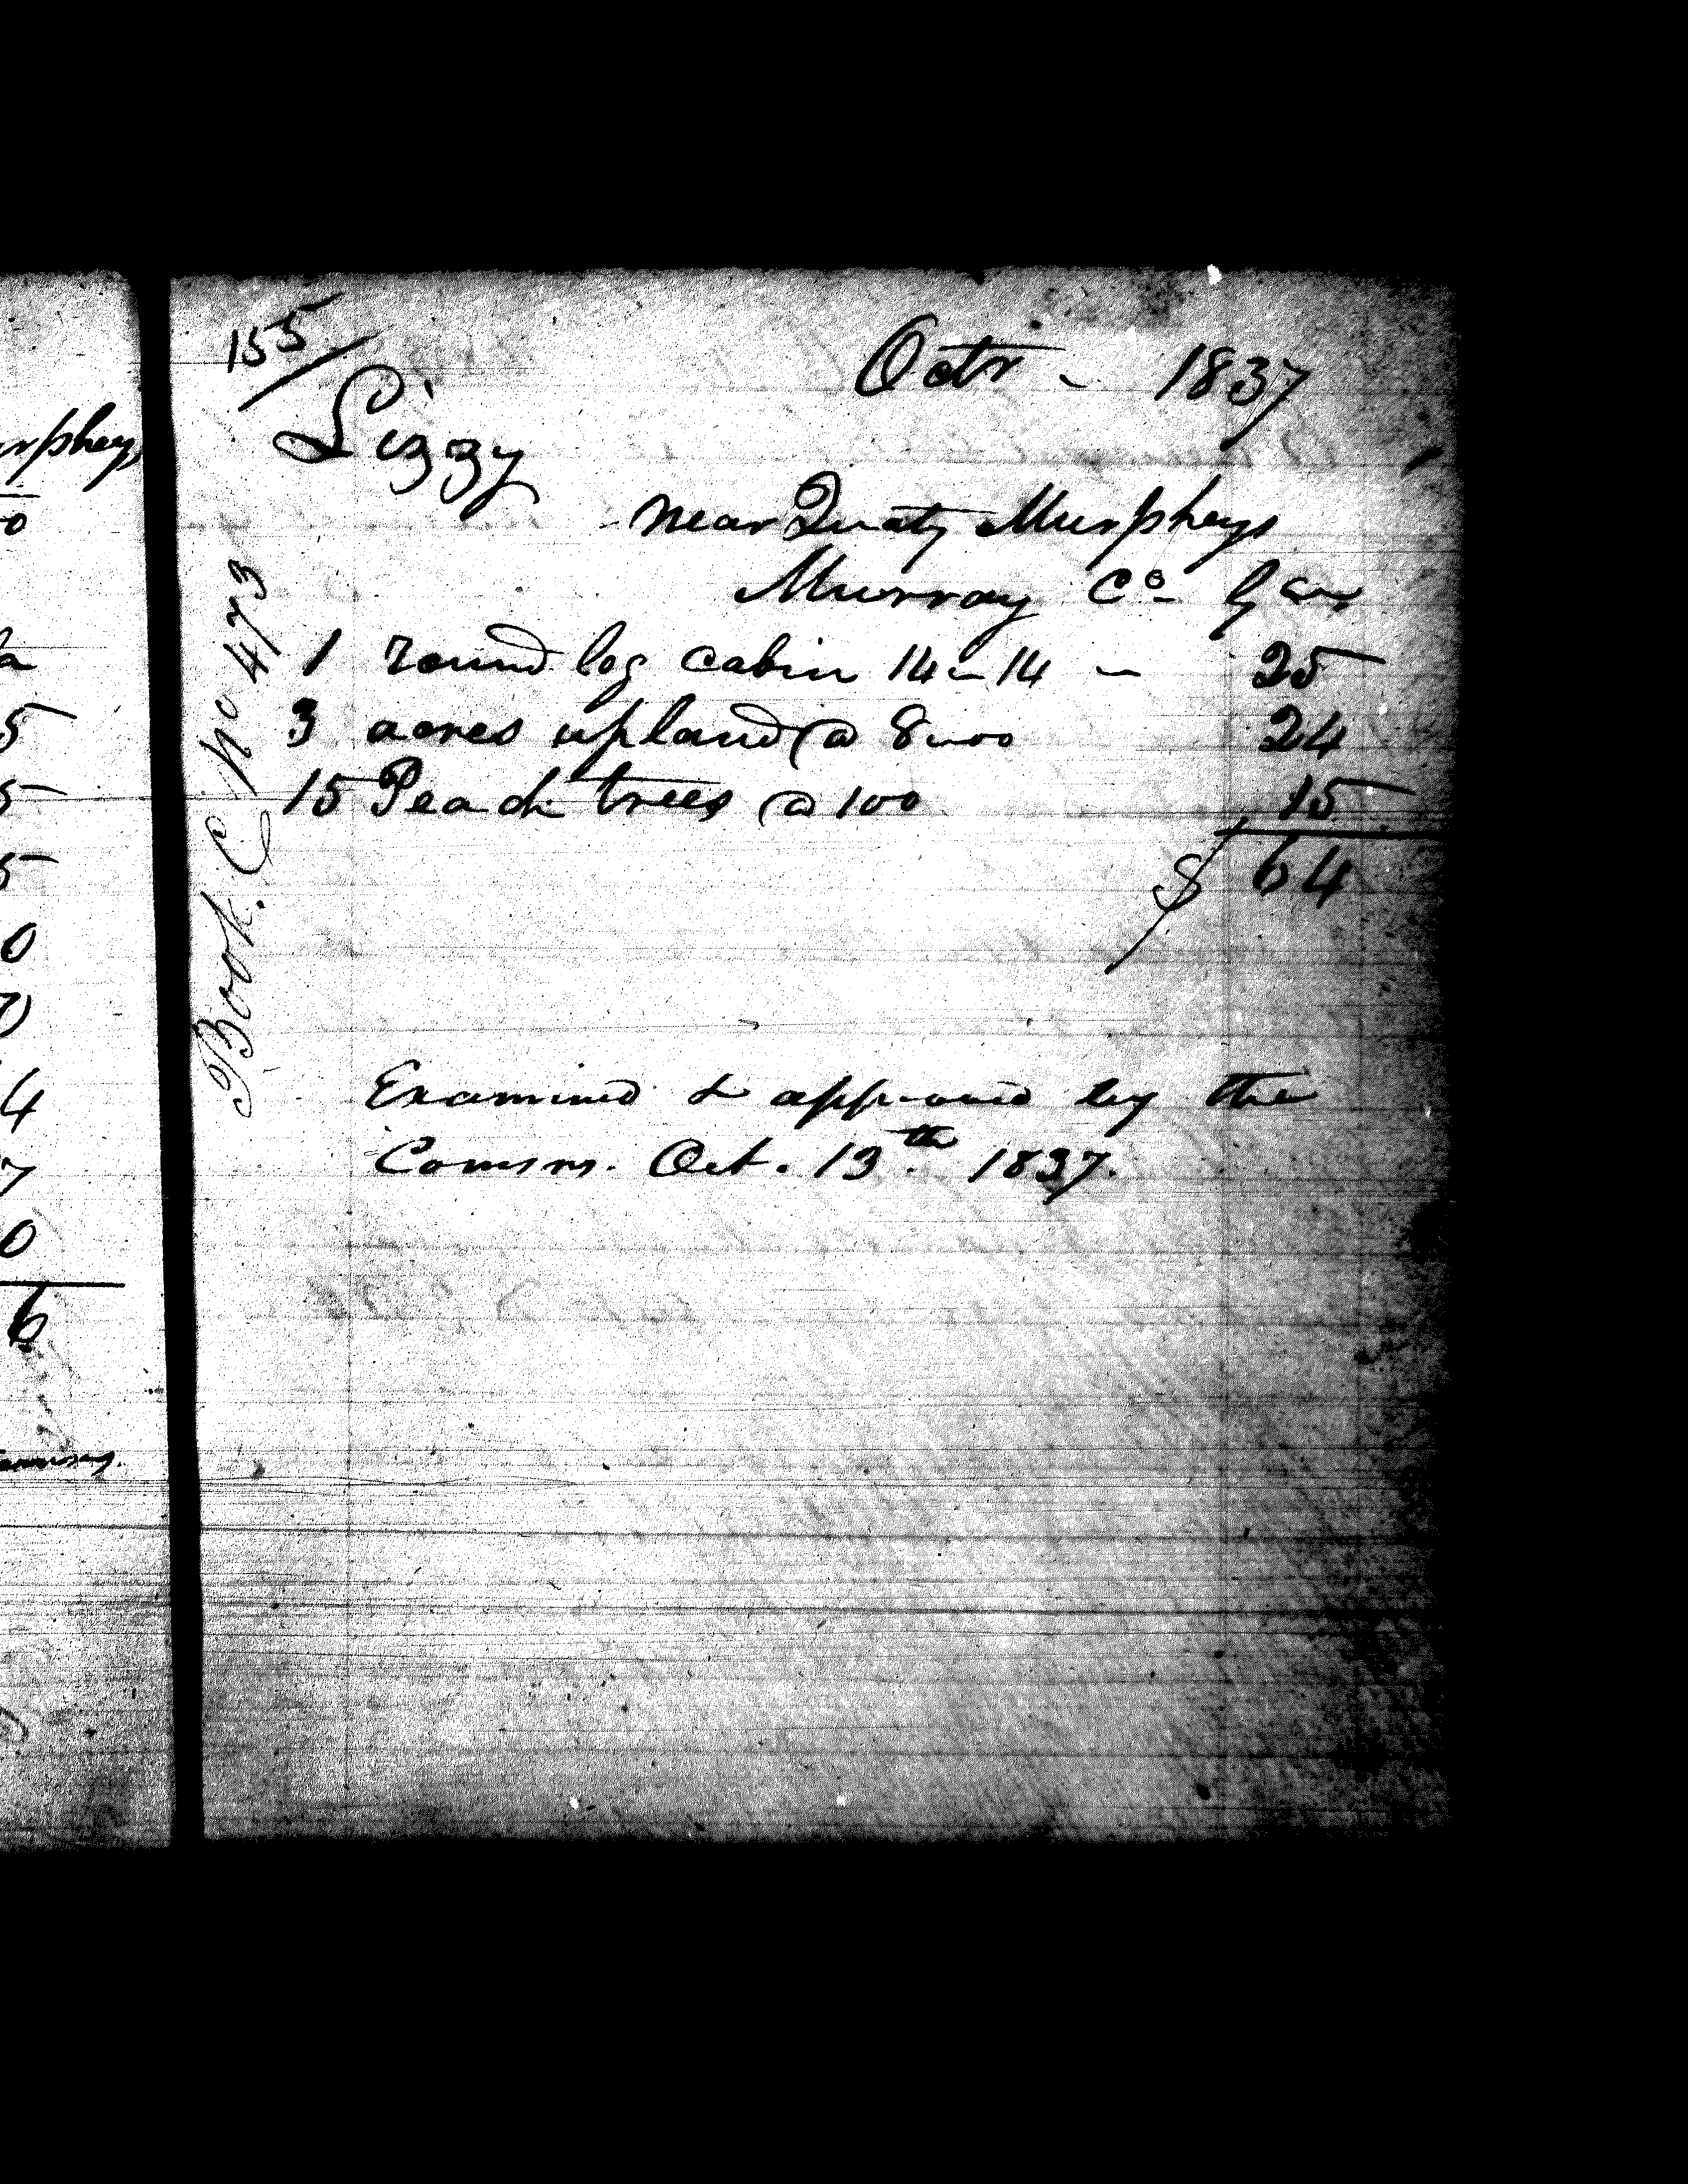 155/
Octr - 1837
Lizzy
near Quaty Murpheys
Murray Co. Ga.
1 round log cabin 14 - 14 - 25
3 acres upland @ 8 - 00 24
15 Peach trees @ 100 15
$ 64
Book. C No 473
Examined & approved by the
Comsrs. Oct. 13th 1837.
rpheys
0
a
5
5
5
0
4
7
0
6